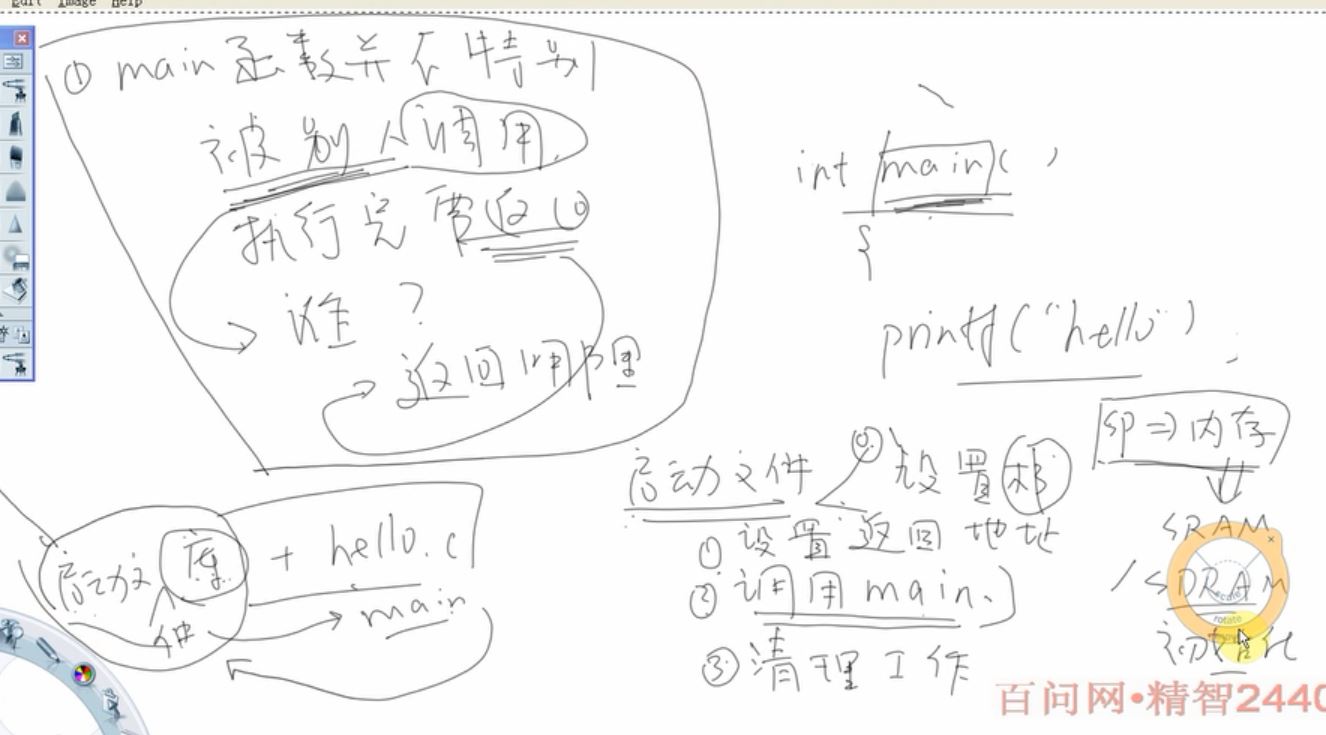 Edit Image Help
① main 函数并不特别
被别人调用
执行完需返回
谁？
返回哪里
int main( )
{
printf("hello")
启动文件
⓪ 设置栈
① 设置返回地址
② 调用 main、
③ 清理工作
sp => 内存
SRAM
/SDRAM
初始化
scale
rotate
启动文件
库
+ hello.c
main
百问网•精智2440